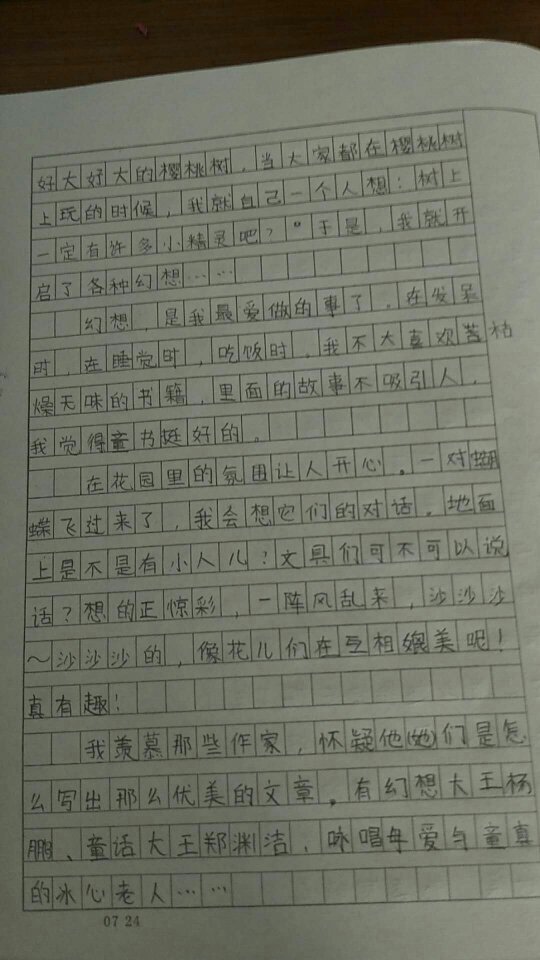 好大好大的樱桃树，当大家都在樱桃树
上玩的时候，我就自己一个人想：树上
一定有许多小精灵吧？”于是，我就开
启了各种幻想……
幻想，是我最爱做的事了。在发呆
时，在睡觉时，吃饭时。我不大喜欢苦枯
燥无味的书籍，里面的故事不吸引人，
我觉得童书挺好的。
在花园里的氛围让人开心。一对蝴
蝶飞过来了，我会想它们的对话。地面
上是不是有小人儿？文具们可不可以说
话？想的正惊彩，一阵风乱来，沙沙沙
～沙沙沙的，像花儿们在互相媲美呢！
真有趣！
我羡慕那些作家，怀疑他(她)们是怎
么写出那么优美的文章。有幻想大王杨
鹏、童话大王郑渊洁、咏唱母爱与童真
的冰心老人……
07 24